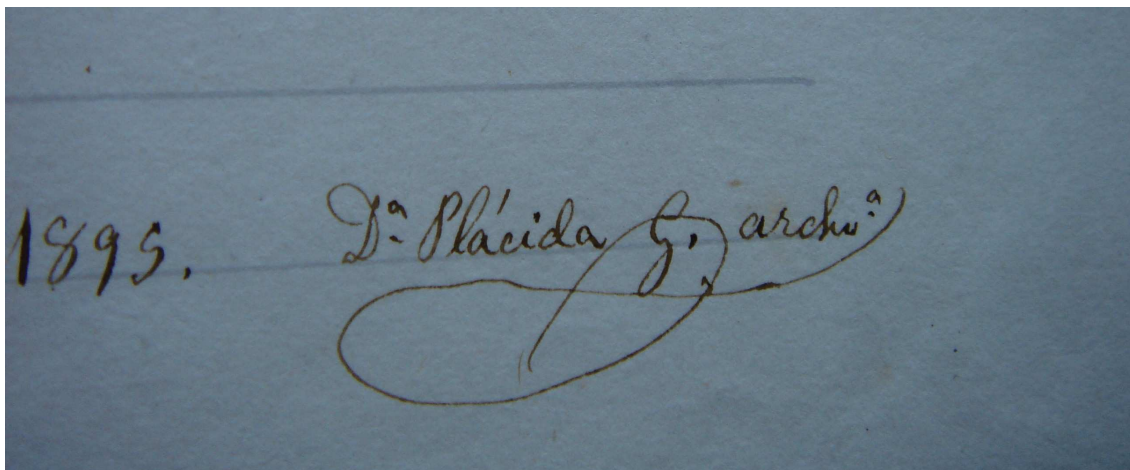 1895. Dª Plácida G. archvª